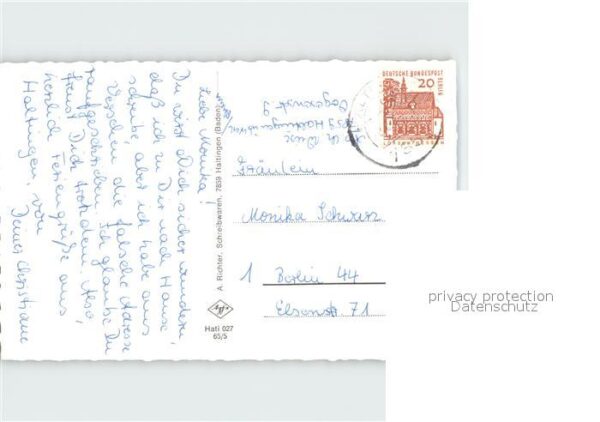 Liebe Monika!
Du wirst Dich sicher wundern,
daß ich zu Dir nach Hause
schreibe, aber ich habe aus
Versehen die falsche Adresse
raufgeschrieben. Ich glaube Du
freust Dich trotzdem. Also,
herzlich Feriengrüße aus
Haltingen, von
Deiner Christiane
A. Richter, Schreibwaren, 7859 Haltingen (Baden)
Hati 027
65/5
7859 Haltingen
Vogesenstr 9
DEUTSCHE BUNDESPOST BERLIN
20
Fräulein
Monika Schwarz
1 Berlin 44
Elsenstr. 71
privacy protection
Datenschutz